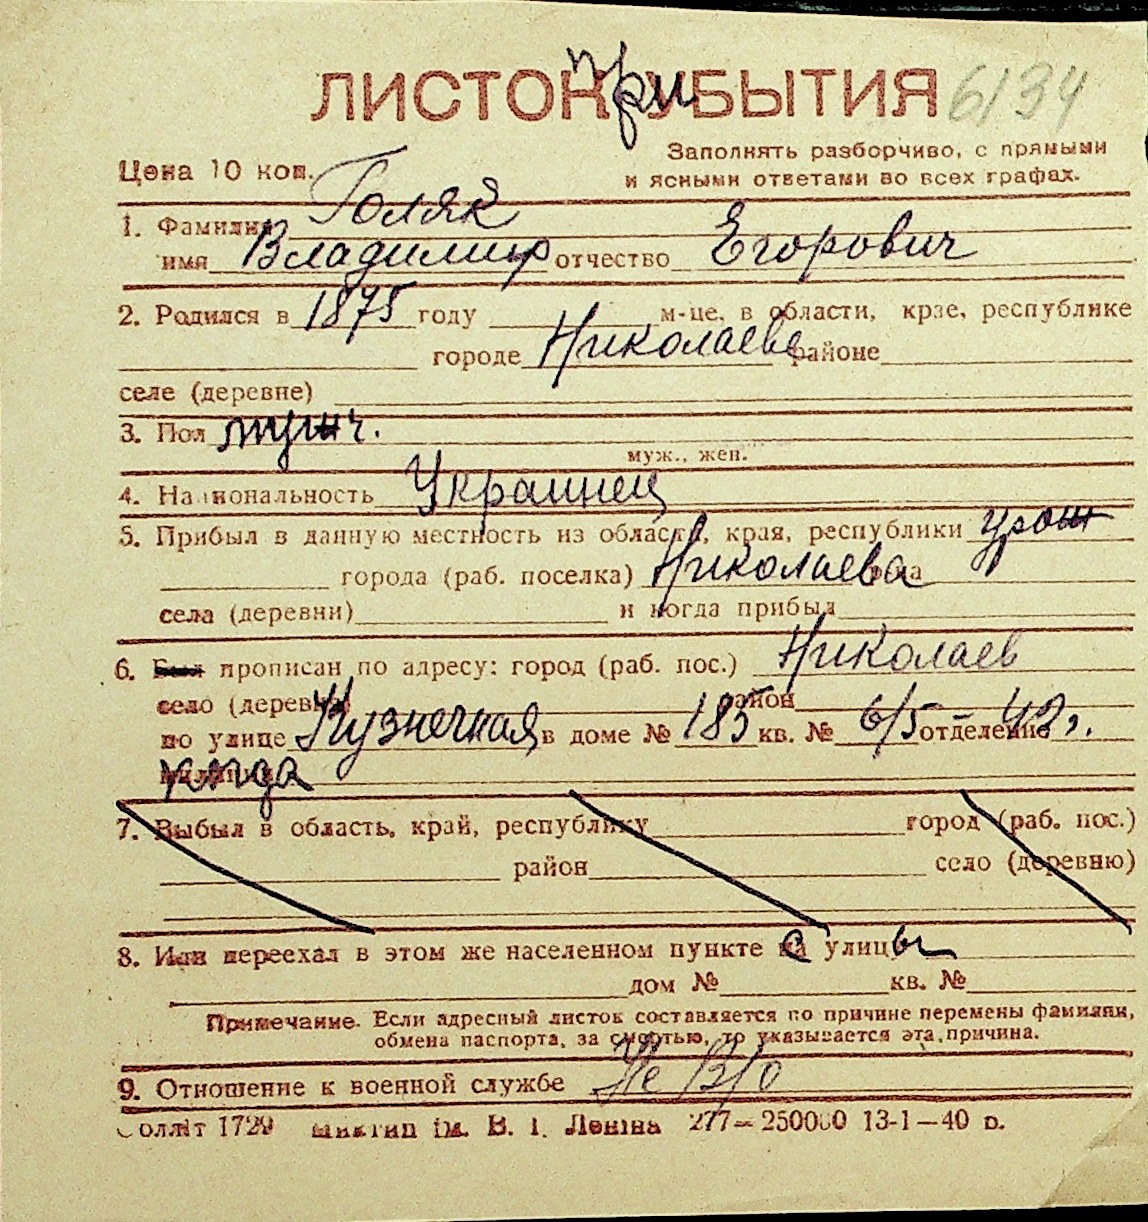 ЛИСТОК при УБЫТИЯ 6134
Заполнять разборчиво, с прямыми
Цена 10 коп. и ясными ответами во всех графах.
1. Фамилия Голяк
имя Владимир отчество Егорович
2. Родился в 1875 году м-це, в области, крае, республике
городе Николаеве районе
селе (деревне)
3. Пол мужч.
муж., жен.
4. Национальность Украинец
5. Прибыл в данную местность из области, края, республики урож
города (раб. поселка) Николаева
села (деревни) и когда прибыл
6. Был прописан по адресу: город (раб. пос.) Николаев
село (деревня) район
по улице Кузнечная в доме № 185 кв. № 6/5 отделение
милиции
7. Выбыл в область, край, республику город (раб. пос.)
район село (деревню)
8. Или переехал в этом же населенном пункте с улицы
дом № кв. №
Примечание. Если адресный листок составляется по причине перемены фамилии,
обмена паспорта, за смертью, то указывается эта причина.
9. Отношение к военной службе Не В/о
1729 ім. В. І. Леніна 277—250000 13-1—40 р.